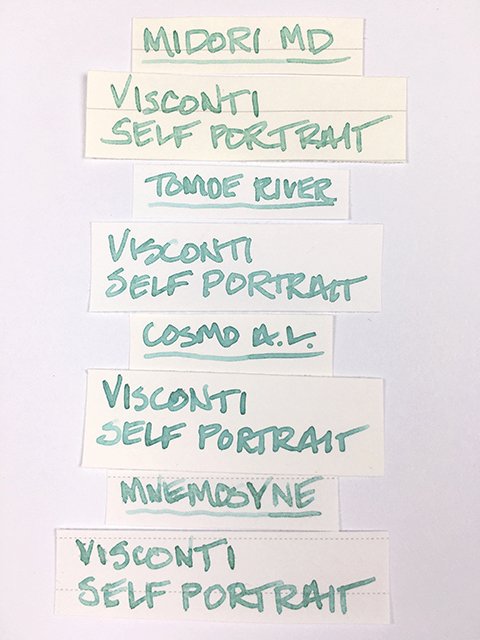 MIDORI MD
VISCONTI
SELF PORTRAIT
TOMOE RIVER
VISCONTI
SELF PORTRAIT
COSMO A.L.
VISCONTI
SELF PORTRAIT
MNEMOSYNE
VISCONTI
SELF PORTRAIT